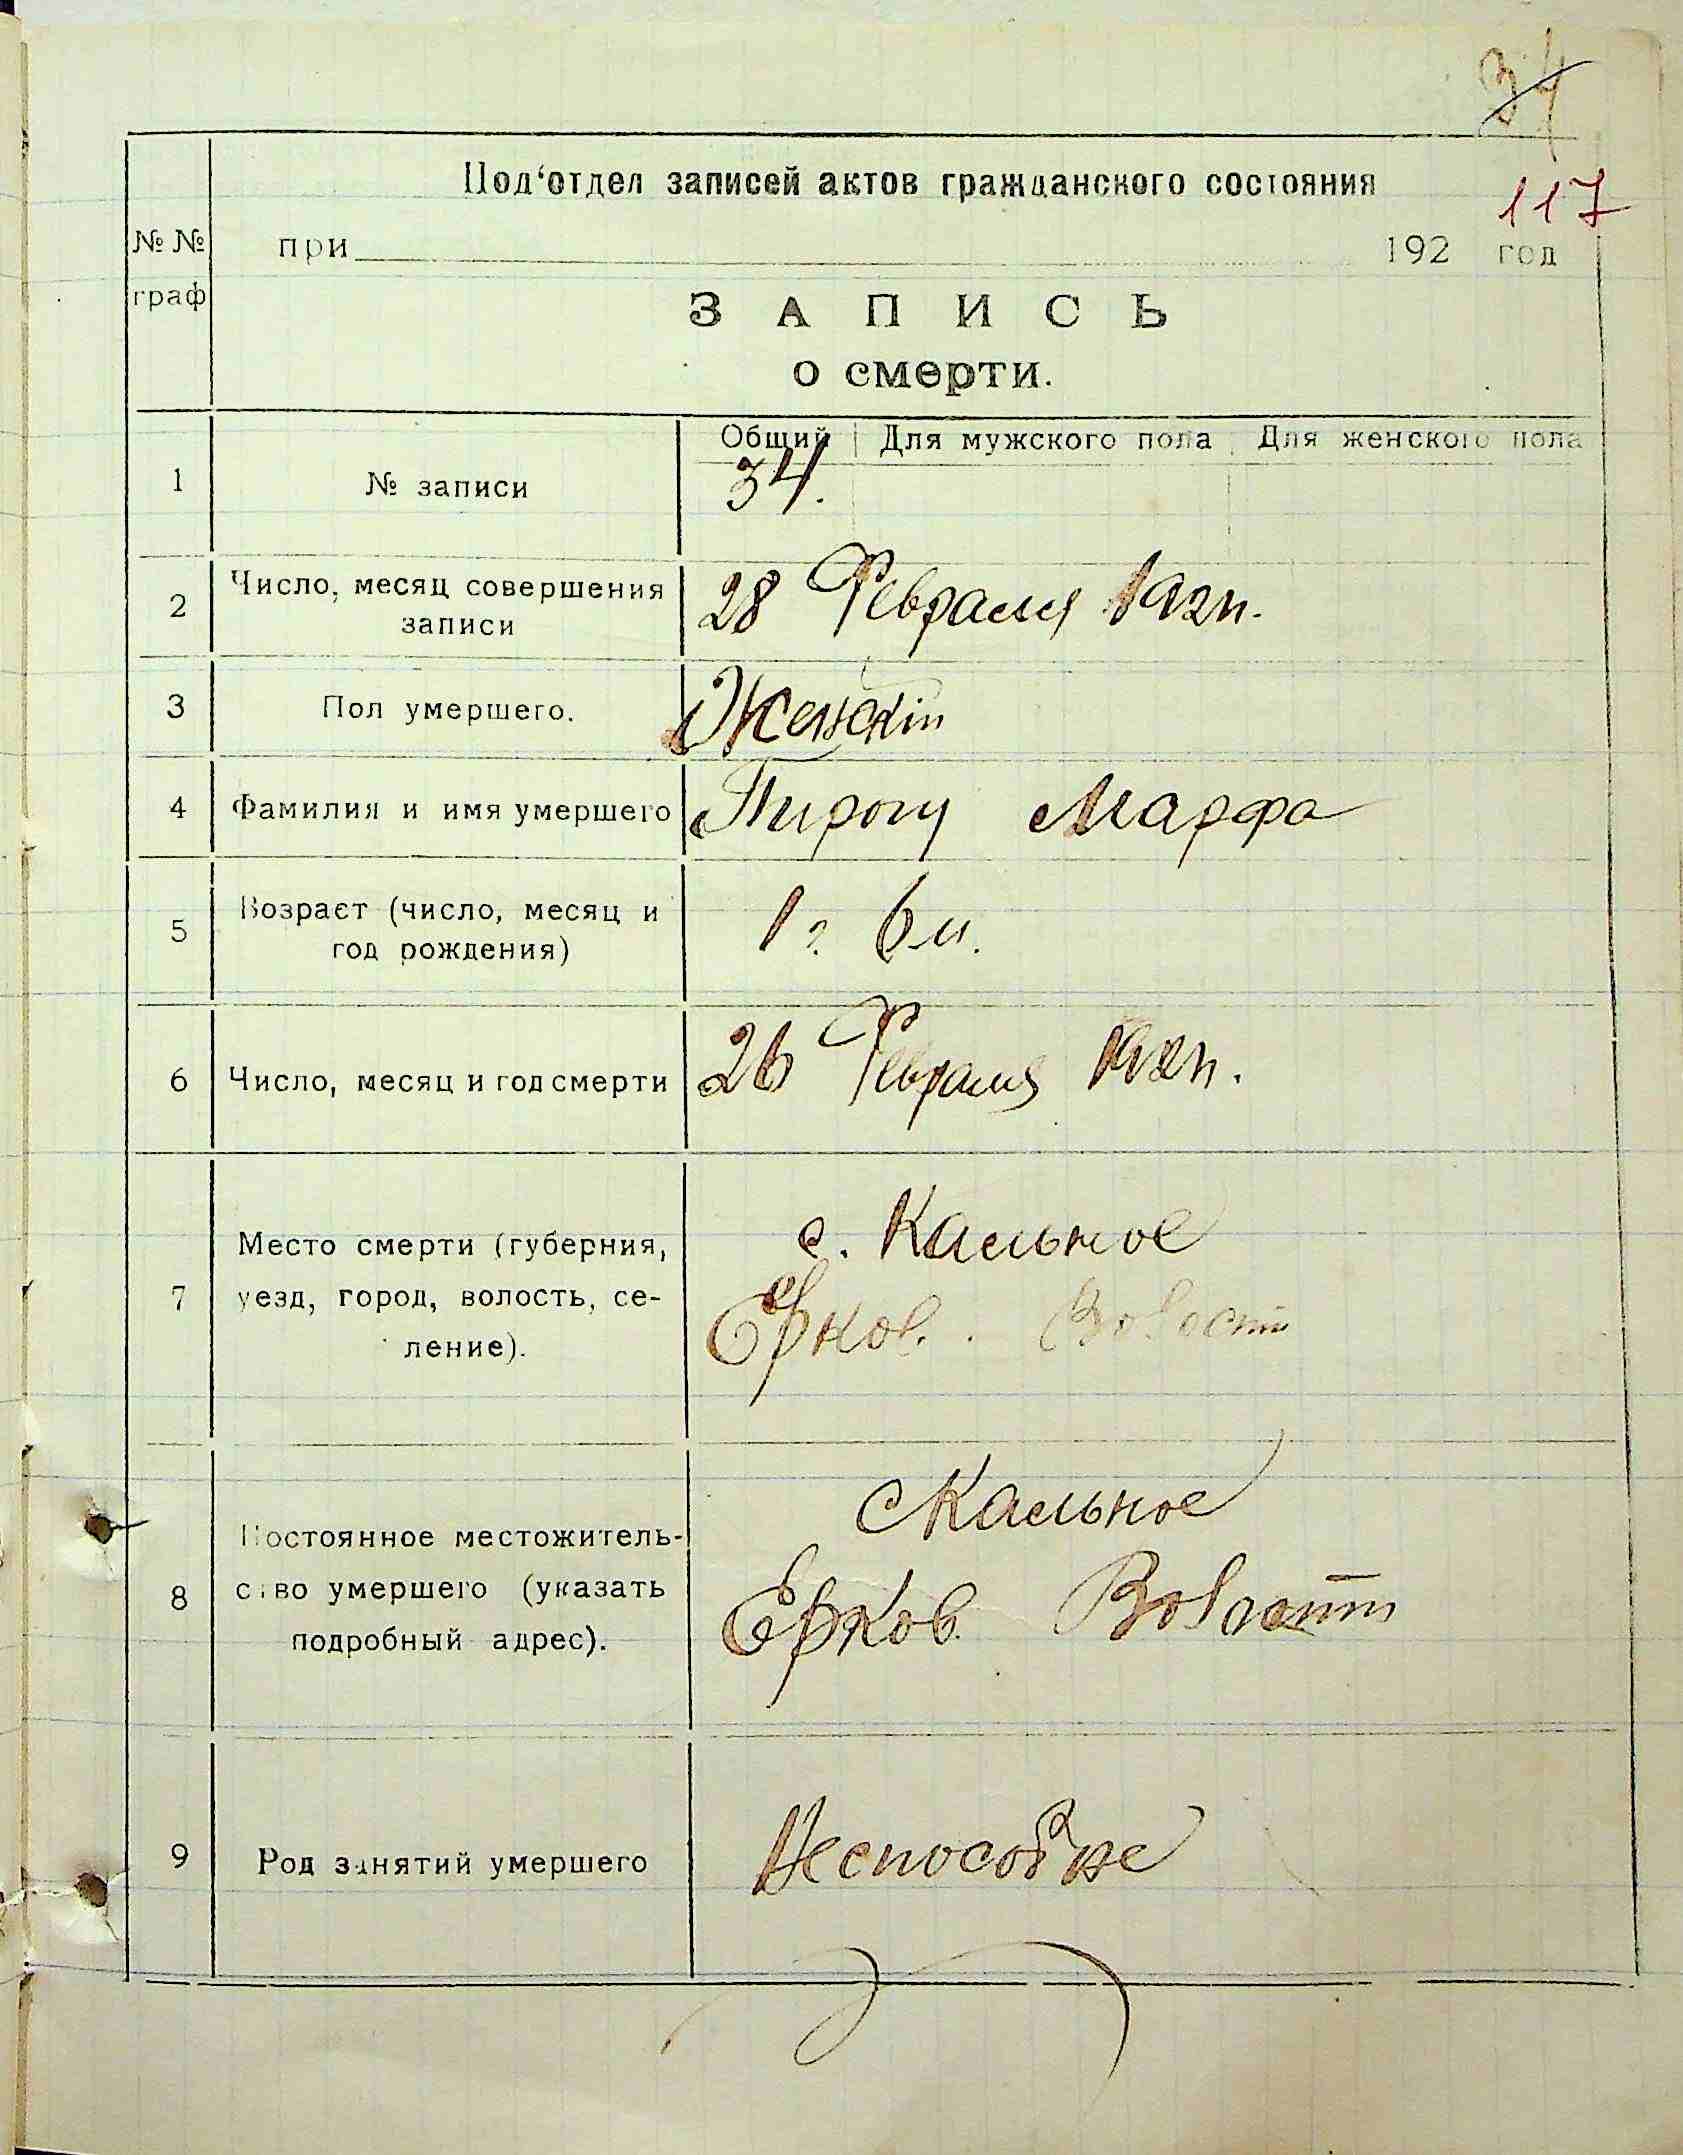 34
117
Под‘отдел записей актов гражданского состояния
№ № граф
при 192 год
ЗАПИСЬ
о смерти.
Общий Для мужского пола Для женского пола
1 № записи 34.
2 Число, месяц совершения
записи
28 Февраля 192
3 Пол умершего. Женскій
4 Фамилия и имя умершего Марфа
5 Возраст (число, месяц и
год рождения)
1 г. 6 м.
6 Число, месяц и год смерти 26 Февраля 192
7 Место смерти (губерния,
уезд, город, волость, се-
ление).
с. Кальное
Ерков. Волости
8 Постоянное местожитель-
ство умершего (указать
подробный адрес).
с Кальное
Ерков. Волости
9 Род занятий умершего Неспособне